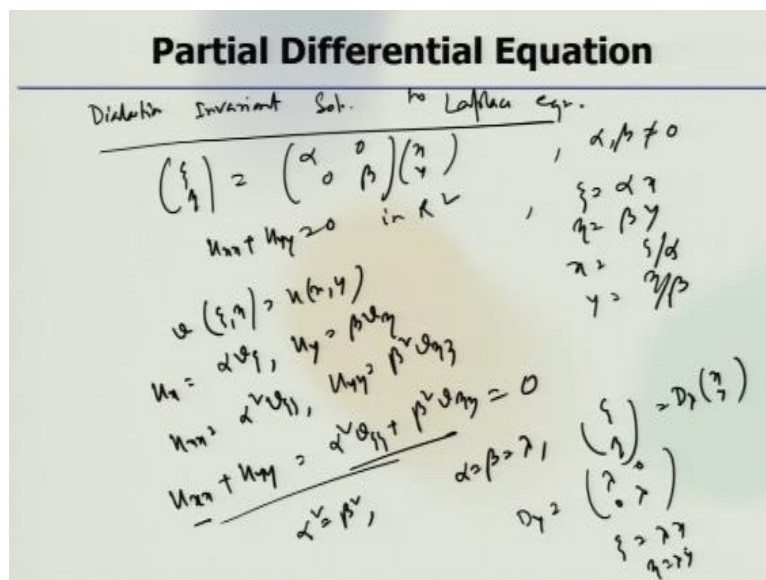 Partial Differential Equation
Dialation Invariant Sol. to Laplace eqn.
(ξ η) = (α 0 0 β)(x y), α, β ≠ 0
u_xx + u_yy = 0 in R², ξ = αx
η = βy
x = ξ/α
y = η/β
v(ξ,η) = u(x,y)
u_x = αv_ξ, u_y = βv_η
u_xx = α²v_ξξ, u_yy = β²v_ηη
u_xx + u_yy = α²v_ξξ + β²v_ηη = 0
α² = β², α = β = λ, (ξ η) = D_λ(x y)
D_λ = (λ 0 0 λ)
ξ = λx
η = λy